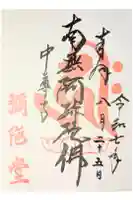 奉拝
令和七年
八月二十五日
南無阿弥陀佛
中尊寺
彌陀堂